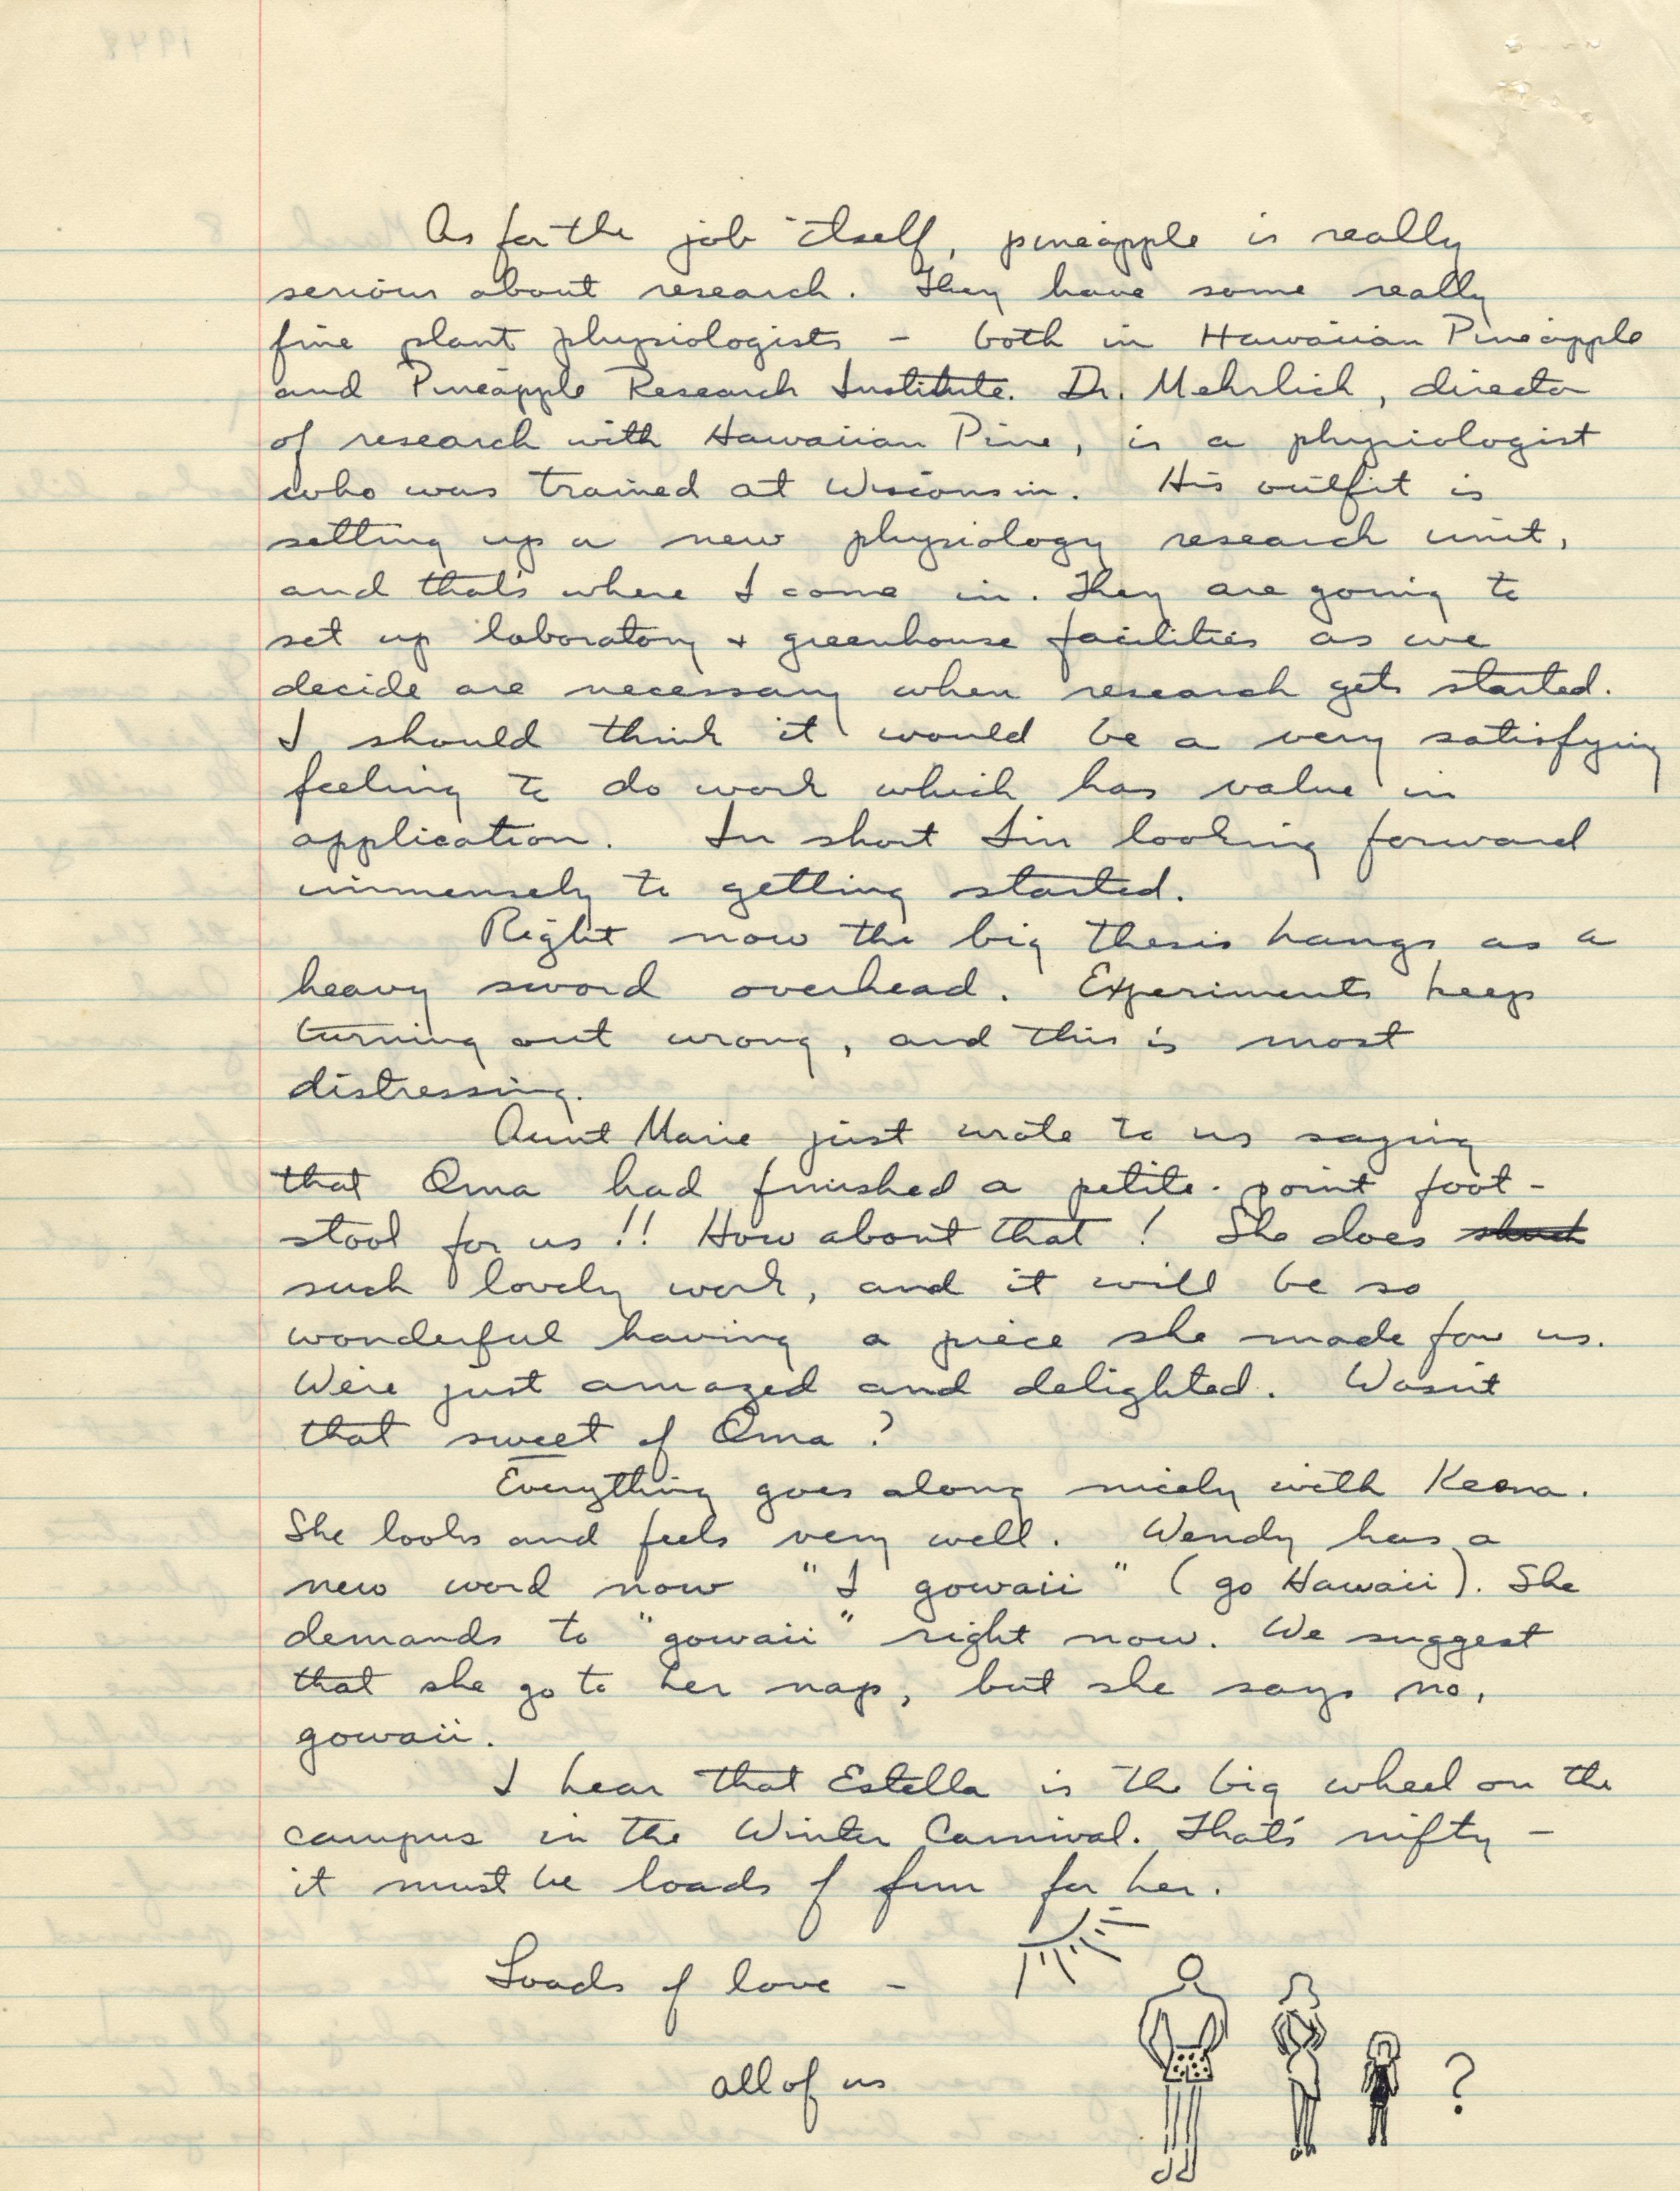 As for the job itself, pineapple is really
serious about research. They have some really
fine plant physiologists - both in Hawaiian Pineapple
and Pineapple Research Institute. Dr. Mehrlich, director
of research with Hawaiian Pine, is a physiologist
who was trained at Wisconsin. His outfit is
setting up a new physiology research unit,
and that's where I come in. They are going to
set up laboratory + greenhouse facilities as we
decide are necessary when research gets started.
I should think it would be a very satisfying
feeling to do work which has value in
application. In short I'm looking forward
immensely to getting started.
Right now the big thesis hangs as a
heavy sword overhead. Experiments keep
turning out wrong, and this is most
distressing.
Aunt Marie just wrote to us saying
that Oma had finished a petite-point foot-
stool for us!! How about that! She does
such lovely work, and it will be so
wonderful having a piece she made for us.
We're just amazed and delighted. Wasn't
that sweet of Oma?
Everything goes along nicely with Keena.
She looks and feels very well. Wendy has a
new word now "I gowaii" (go Hawaii). She
demands to "gowaii" right now. We suggest
that she go to her nap, but she says no,
gowaii.
I hear that Estella is the big wheel on the
campus in the Winter Carnival. That's nifty -
it must be loads of fun for her.
Loads of love -
all of us
?